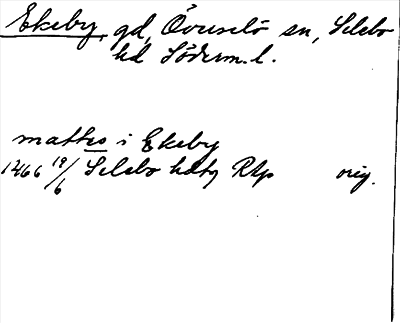 Ekeby, gd, Överselö sn, Selebo
hd Söderm.l.
mattes i Ekeby
1466 19/6 Selebo hdtg Rtp orig.